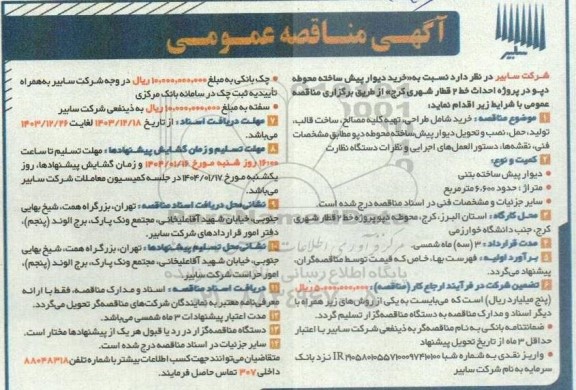 آگهی مناقصه عمومی
سابیر
شرکت سابیر در نظر دارد نسبت به «خرید دیوار پیش ساخته محوطه
دپو در پروژه احداث خط ۲ قطار شهری کرج» از طریق برگزاری مناقصه
عمومی با شرایط زیر اقدام نماید:
۱ موضوع مناقصه: خرید شامل طراحی، تهیه کلیه مصالح، ساخت قالب،
تولید، حمل، نصب و تحویل دیوار پیش‌ساخته محوطه دپو مطابق مشخصات
فنی، نقشه‌ها، دستورالعمل‌های اجرایی و نظرات دستگاه نظارت
۲ کمیت و نوع:
• دیوار پیش ساخته بتنی
• متراژ: حدود ۶.۶۰۰ مترمربع
• سایر جزئیات و مشخصات فنی در اسناد مناقصه درج شده است.
۳ محل کارگاه: استان البرز، کرج، محوطه دپو پروژه خط ۲ قطار شهری
کرج، جنب دانشگاه خوارزمی
۴ مدت قرارداد: ۳ (سه) ماه شمسی.
۵ برآورد اولیه: فهرست بها، خاص که قیمت توسط مناقصه‌گران،
پیشنهاد می‌گردد.
۶ تضمین شرکت در فرآیند ارجاع کار (مناقصه): ۵.۰۰۰.۰۰۰.۰۰۰ ریال
(پنج میلیارد ریال) است که می‌بایست به یکی از روش‌های زیر همراه با
دیگر اسناد و مدارک مناقصه به دستگاه مناقصه‌گزار تسلیم گردد.
• ضمانتنامه بانکی به نام مناقصه‌گر به ذینفعی شرکت سابیر با اعتبار
حداقل ۳ ماه از تاریخ تحویل پیشنهاد
• واریز نقدی به شماره شبا نزد بانک
سرمایه به نام شرکت سابیر
• چک بانکی به مبلغ ۱۰.۰۰۰.۰۰۰.۰۰۰ ریال در وجه شرکت سابیر به همراه
تأییدیه ثبت چک در سامانه بانک مرکزی
• سفته به مبلغ ۱۰.۰۰۰.۰۰۰.۰۰۰ ریال به ذینفعی شرکت سابیر
۷ مهلت دریافت اسناد: از تاریخ ۱۴۰۳/۱۲/۱۸ لغایت ۱۴۰۳/۱۲/۲۶
می‌باشد.
۸ مهلت تسلیم و زمان گشایش پیشنهادها: مهلت تسلیم تا ساعت
۱۶:۰۰ روز شنبه مورخ ۱۴۰۴/۰۱/۱۶ و زمان گشایش پیشنهادها، روز
یکشنبه مورخ ۱۴۰۴/۰۱/۱۷ در جلسه کمیسیون معاملات شرکت سابیر
می‌باشد.
۹ نشانی محل دریافت اسناد مناقصه: تهران، بزرگراه همت، شیخ بهایی
جنوبی، خیابان شهید آقاعلیخانی، مجتمع ونک پارک، برج الوند (پنجم)،
دفتر امور قراردادهای شرکت سابیر.
۱۰ نشانی محل تسلیم پیشنهادها: تهران، بزرگراه همت، شیخ بهایی
جنوبی، خیابان شهید آقاعلیخانی، مجتمع ونک پارک، برج الوند (پنجم)،
امور حراست شرکت سابیر.
۱۱ دریافت اسناد مناقصه: اسناد و مدارک مناقصه، فقط با ارائه
معرفی‌نامه معتبر به نمایندگان شرکت‌های مناقصه‌گر تحویل می‌گردد.
۱۲ مدت اعتبار پیشنهادات ۳ ماه شمسی می‌باشد.
۱۳ دستگاه مناقصه‌گزار در رد یا قبول هر یک از پیشنهادها مختار است.
۱۴ سایر جزئیات در اسناد مناقصه درج شده است.
متقاضیان می‌توانند جهت کسب اطلاعات بیشتر با شماره تلفن ۸۸۰۴۸۳۱۸
داخلی ۳۰۷ تماس حاصل فرمایند.